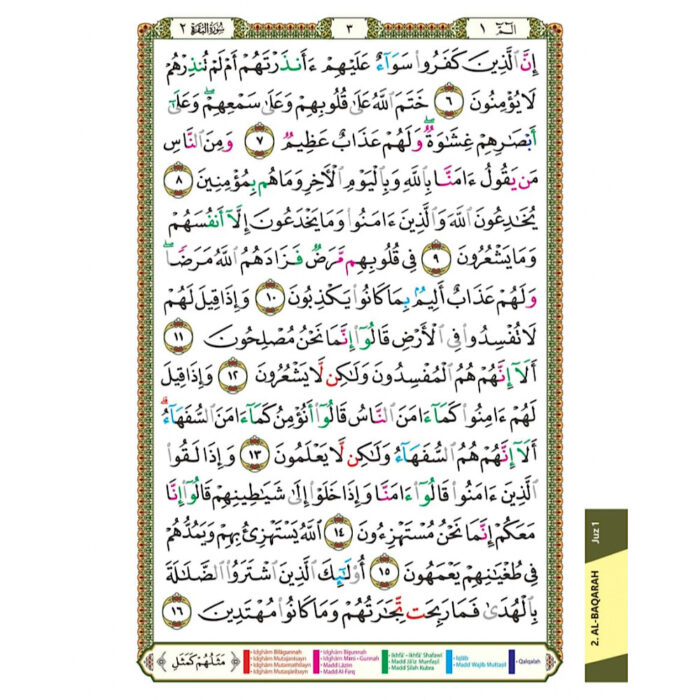 الٓمٓ ١
٣
سُورَةُ البَقَرَةِ ٢
إِنَّ ٱلَّذِينَ كَفَرُوا۟ سَوَآءٌ عَلَيْهِمْ ءَأَنذَرْتَهُمْ أَمْ لَمْ تُنذِرْهُمْ
لَا يُؤْمِنُونَ ٦ خَتَمَ ٱللَّهُ عَلَىٰ قُلُوبِهِمْ وَعَلَىٰ سَمْعِهِمْ ۖ وَعَلَىٰٓ
أَبْصَٰرِهِمْ غِشَٰوَةٌ ۖ وَلَهُمْ عَذَابٌ عَظِيمٌ ٧ وَمِنَ ٱلنَّاسِ
مَن يَقُولُ ءَامَنَّا بِٱللَّهِ وَبِٱلْيَوْمِ ٱلْءَاخِرِ وَمَا هُم بِمُؤْمِنِينَ ٨
يُخَٰدِعُونَ ٱللَّهَ وَٱلَّذِينَ ءَامَنُوا۟ وَمَا يَخْدَعُونَ إِلَّآ أَنفُسَهُمْ
وَمَا يَشْعُرُونَ ٩ فِى قُلُوبِهِم مَّرَضٌ فَزَادَهُمُ ٱللَّهُ مَرَضًا ۖ
وَلَهُمْ عَذَابٌ أَلِيمٌۢ بِمَا كَانُوا۟ يَكْذِبُونَ ١٠ وَإِذَا قِيلَ لَهُمْ
لَا تُفْسِدُوا۟ فِى ٱلْأَرْضِ قَالُوٓا۟ إِنَّمَا نَحْنُ مُصْلِحُونَ ١١
أَلَآ إِنَّهُمْ هُمُ ٱلْمُفْسِدُونَ وَلَٰكِن لَّا يَشْعُرُونَ ١٢ وَإِذَا قِيلَ
لَهُمْ ءَامِنُوا۟ كَمَآ ءَامَنَ ٱلنَّاسُ قَالُوٓا۟ أَنُؤْمِنُ كَمَآ ءَامَنَ ٱلسُّفَهَآءُ ۗ
أَلَآ إِنَّهُمْ هُمُ ٱلسُّفَهَآءُ وَلَٰكِن لَّا يَعْلَمُونَ ١٣ وَإِذَا لَقُوا۟
ٱلَّذِينَ ءَامَنُوا۟ قَالُوٓا۟ ءَامَنَّا وَإِذَا خَلَوْا۟ إِلَىٰ شَيَٰطِينِهِمْ قَالُوٓا۟ إِنَّا
مَعَكُمْ إِنَّمَا نَحْنُ مُسْتَهْزِءُونَ ١٤ ٱللَّهُ يَسْتَهْزِئُ بِهِمْ وَيَمُدُّهُمْ
فِى طُغْيَٰنِهِمْ يَعْمَهُونَ ١٥ أُو۟لَٰٓئِكَ ٱلَّذِينَ ٱشْتَرَوُا۟ ٱلضَّلَٰلَةَ
بِٱلْهُدَىٰ فَمَا رَبِحَت تِّجَٰرَتُهُمْ وَمَا كَانُوا۟ مُهْتَدِينَ ١٦
مَثَلُهُمْ كَمَثَلِ
• Idghām Bilāgannah
• Idghām Mutajānisayn
• Idghām Mutamāthilayn
• Idghām Mutaqāribayn
• Idghām Bigunnah
• Idghām Mimi • Gunnah
• Madd Lāzim
• Madd Al-Farq
• Ikhfā' • Ikhfā' Shafawī
• Madd Jā'iz Munfaṣil
• Madd Ṣilah Kubra
• Iqlāb
• Madd Wajib Muttaṣil
• Qalqalah
2. AL-BAQARAH
Juz 1